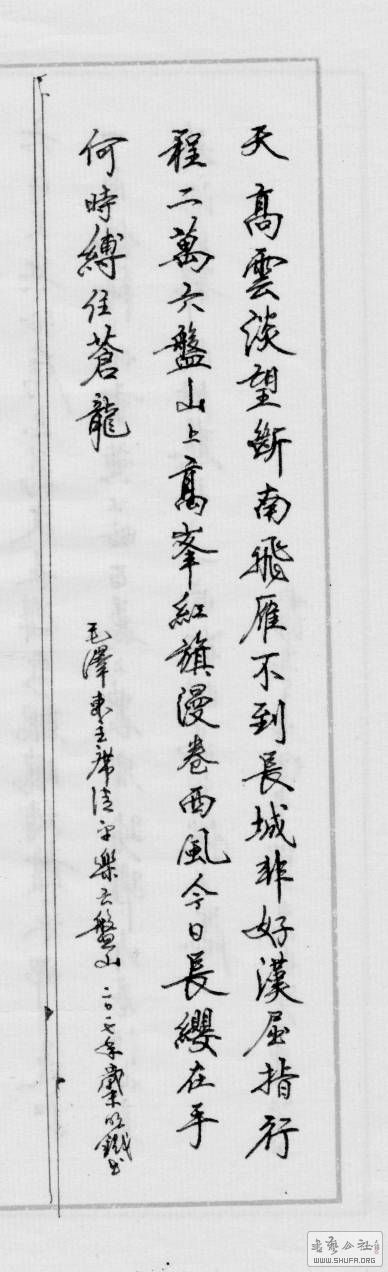 天高雲淡望斷南飛雁不到長城非好漢屈指行
程二萬六盤山上高峯紅旗漫卷西風今日長纓在手
何時縛住蒼龍
毛澤東主席清平樂六盤山 二〇一七年
WWW.SHUFA.ORG